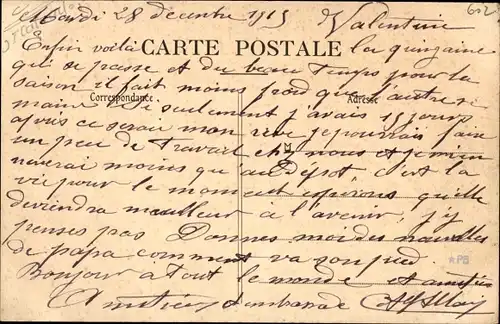 Mardi 28 décembre 1915 Valentine 602
Enfin voila CARTE POSTALE la quinzaine
qui se passe et du beau Temps pour la
saison il fait moins froid que l'autre se
Correspondance Adresse
maine Si seulement j avais 15 jours
après ce serau mon rêve je pourrais faire
un peu de Travail chez nous et je m'en
nuierai moins qu au Dépot, c'est la
vie pour le moment espérons qu'elle
deviendra meilleur à l'avenir, j y
penses pas Donnes moi des nouvelles
de papa comment va son pied
Bonjour a Tout le monde et amitiés
Amitiés
PB